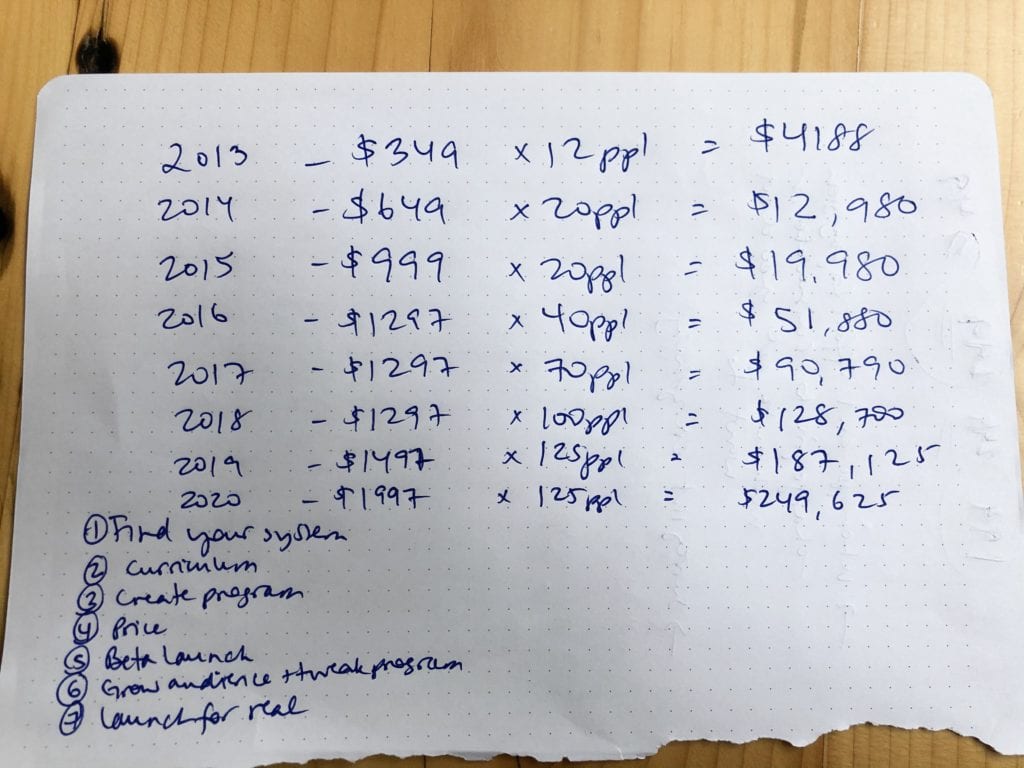 2013 - $349 x 12 ppl = $4188
2014 - $649 x 20ppl = $12,980
2015 - $999 x 20ppl = $19,980
2016 - $1297 x 40ppl = $51,880
2017 - $1297 x 70ppl = $90,790
2018 - $1297 x 100ppl = $128,700
2019 - $1497 x 125ppl = $187,125
2020 - $1997 x 125ppl = $249,625
① Find your system
② Curriculum
③ Create program
④ Price
⑤ Beta Launch
⑥ Grow audience + tweak program
⑦ Launch for real